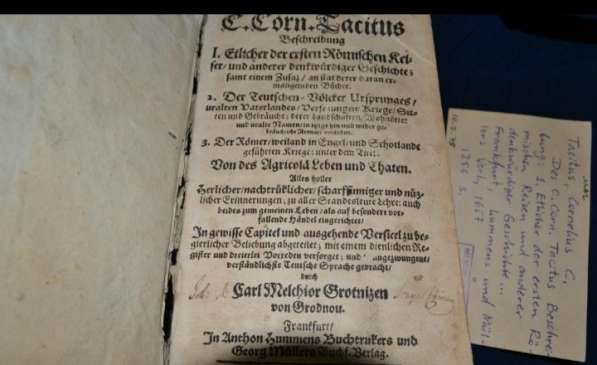 C. Corn. Tacitus
Beschreibung
I. Etlicher der ersten Römischen Kei-
ser/ und anderer denckwürdiger Geschichte;
samt einem Zusaz/ an stat derer daran er-
mangelnden Bücher.
2. Der Teutschen-Völcker Ursprunges/
uralten Vaterlandes/ Verfassungen/ Kriege/ Sit-
ten und Gebräuche; derer Landschaften, Wohnörter
und uralte Namen/
3. Der Römer/ weiland in Engel- und Schotlande
geführten Kriege: unter dem Titul:
Von des Agricolä Leben und Thaten.
Alles voller
Herlicher/ nachtrüklicher/ scharfsinniger und nüz-
licher Erinnerungen/ zu aller Standesleute Lehre: auch
beides zum gemeinen Leben/ als auf besondere vor-
fallende Händel eingerichtet/
In gewisse Capitel und ausgehende Versicel zu be-
gierlicher Beliebung abgeteilet; mit einem dienlichen Re-
gister und dreierlei Vorreden versorget; und
verständlichste Teutsche Sprache gebracht/
durch
Carl Melchior Grotnizen
von Grodnou.
Frankfurt/
In Anthon Hummens Buchtrukers und
Georg Müllers Buchf. Verlag.
Tacitus, Cornelius C.
Des C. Corn. Tacitus Beschrei-
bung. 1. Etlicher der ersten Rö-
mischen Keisen und anderer
denkwürdiger Geschichte...
Frankfurt, Hummens und Mül-
lers Verl., 1657
1256 S.